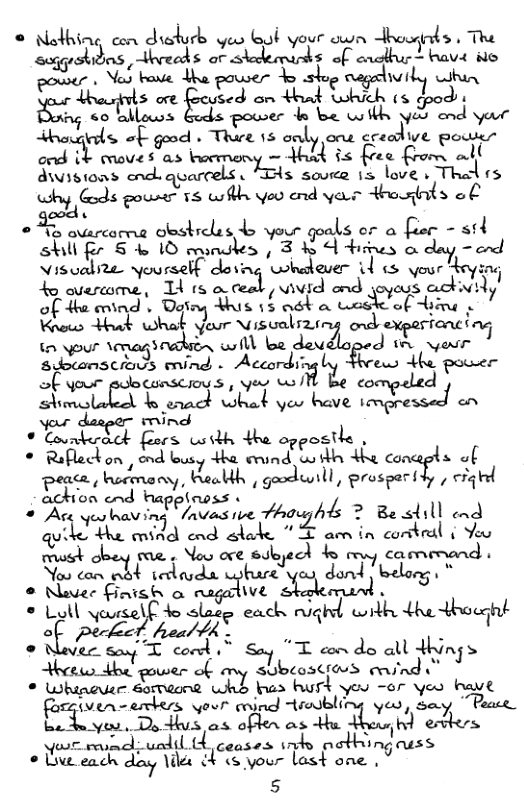 • Nothing can disturb you but your own thoughts. The
suggestions, threats or statements of another - have no
power. You have the power to stop negativity when
your thoughts are focused on that which is good.
Doing so allows Gods power to be with you and your
thoughts of good. There is only one creative power
and it moves as harmony - that is free from all
divisions and quarrels. Its source is love. That is
why Gods power is with you and your thoughts of
good.
• To overcome obsticles to your goals or a fear - sit
still for 5 to 10 minutes, 3 to 4 times a day - and
visualize yourself doing whatever it is your trying
to overcome. It is a real, vivid and joyous activity
of the mind. Doing this is not a waste of time.
Know that what your visualizing and experiancing
in your imagination will be developed in your
subconscious mind. Accordingly threw the power
of your subconscious, you will be compeled,
stimulated to enact what you have impressed on
your deeper mind
• Counteract fears with the opposite.
• Reflect on, and busy the mind with the concepts of
peace, harmony, health, goodwill, prosperity, right
action and happiness.
• Are you having Invasive thoughts? Be still and
quite the mind and state "I am in control; You
must obey me. You are subject to my command.
You can not intrude where you dont belong."
• Never finish a negative statement.
• Lull yourself to sleep each night with the thought
of perfect health.
• Never say "I cant." Say "I can do all things
threw the power of my subcoscious mind."
• Whenever someone who has hurt you - or you have
forgiven - enters your mind troubling you, say "Peace
be to you. Do this as often as the thought enters
your mind until it ceases into nothingness
• Live each day like it is your last one.
5